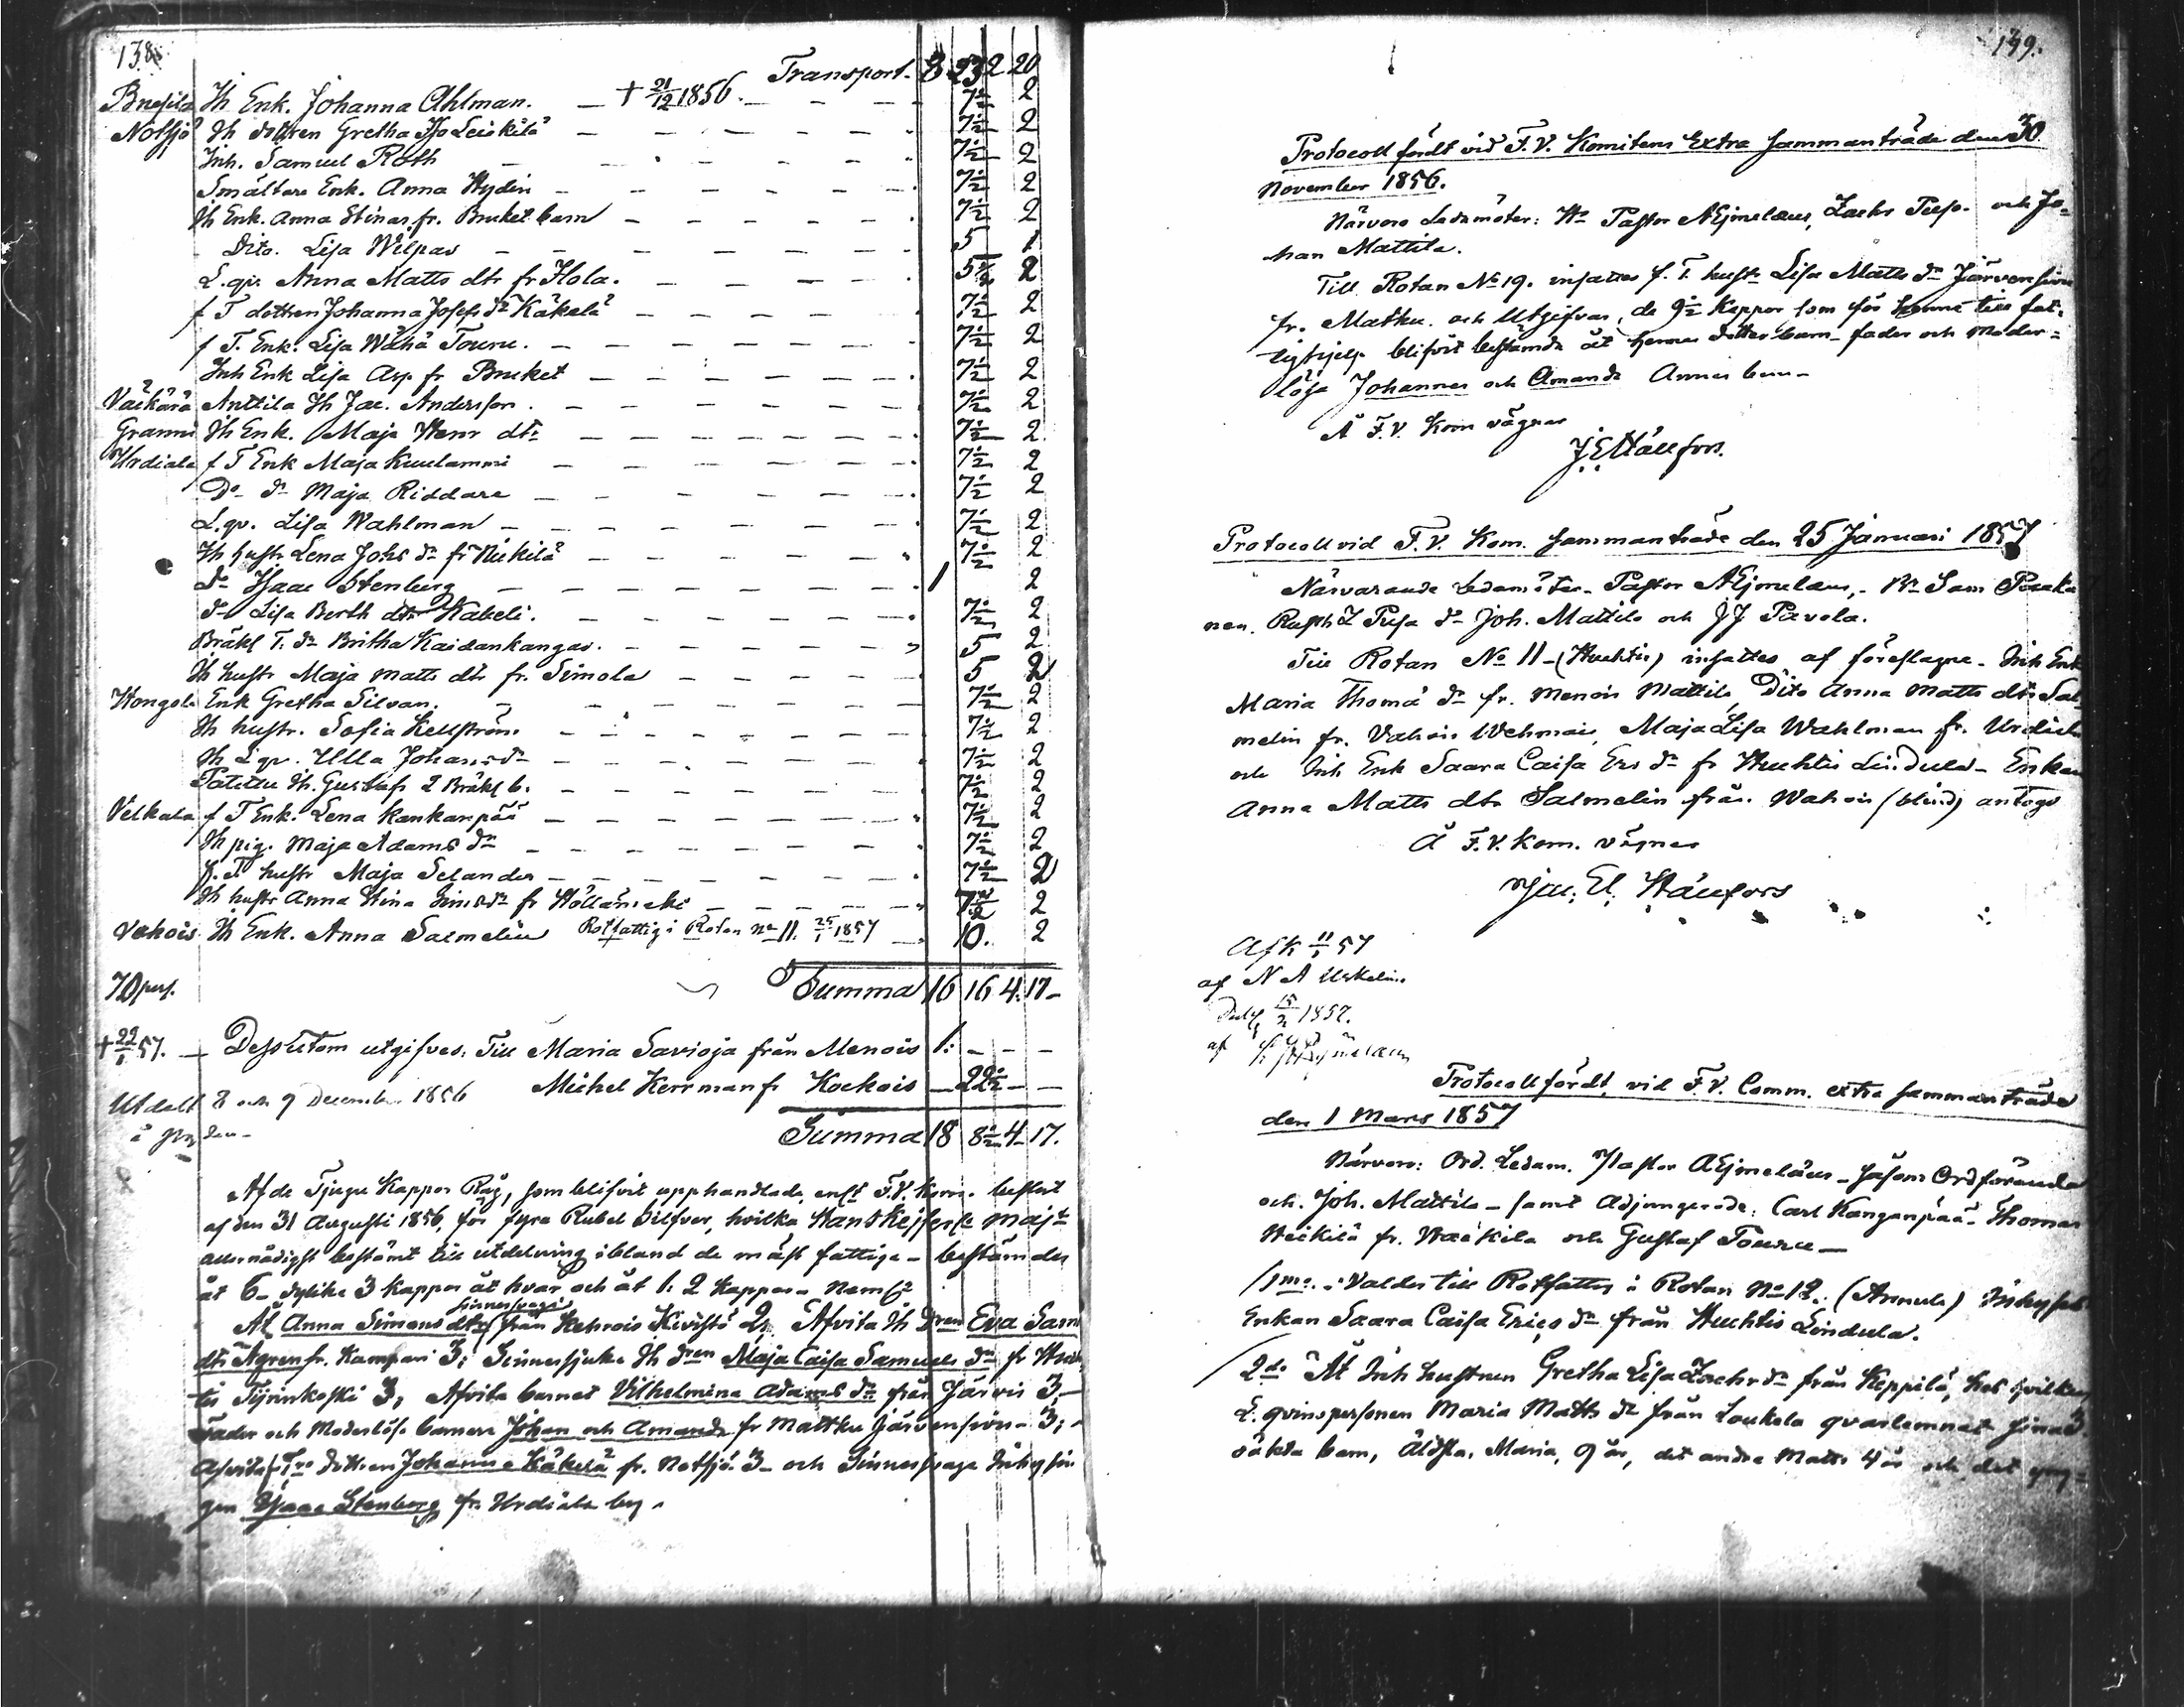 138.
Transport. 8 23 2 20
Ih Enk. Johanna Ahlman. — † 21/12 1856. — — — 7½ 2
Notsjö Ih dottren Gretha — — — — — — 7½ 2
Inh. Samuel Roth — — — — — 7½ 2
Smältare Enk. Anna Hydén — — — — — — 7½ 2
Ih Enk. Anna Stinas fr. Bruket barn — — — — — 7½ 2
Dito. Lisa Wilpas — — — — — — — 5 1
L.qv. Anna Matts dtr fr Hola. — — — — 5½ 2
f T dottren Johanna Josefs dr Käkelä — — — — — 7½ 2
f T. Enk. Lisa Wähä Touru. — — — — — — 7½ 2
Inh Enk Lisa Asp. fr Bruket — — — — — — 7½ 2
Anttila Ih Jac. Andersson. — — — — — — 7½ 2
Ih Enk. Maja Henr dtr — — — — — — 7½ 2
Urdiala f T Enk Maja Kuulammi — — — — — 7½ 2
Do dr Maja Riddare — — — — — — 7½ 2
L.qv. Lisa Wahlman — — — — — — 7½ 2
Ih hustr Lena Johs dr fr Nickilä — — — — — 7½ 2
Dr Isaac Stenberg — — — — — — 1 2
dr Lisa Berth dtr Kabeli. — — — — — — 7½ 2
Bräkl T. dr Britha Kaidankangas. — — — — — 5 2
Ih hustr Maja Matts dtr fr. Simola — — — — — 5 2
Hongola Enk Gretha Silvan. — — — — — — 7½ 2
Ih hustr. Sofia Kellström — — — — — — 7½ 2
Ih L.qv. Ulla Johans dr — — — — — — 7½ 2
Ih. Gustafs 2 Bräkl b. — — — — — — 7½ 2
Velkala f T Enk. Lena Kankanpää — — — — — — 7½ 2
Ih pig. Maja Adams dr — — — — — — 7½ 2
f. T hustr Maja Selander — — — — — — 7½ 2
Ih hustr Anna Stina Sims dr fr — — — — 7½ 2
Vahois Ih Enk. Anna Salmelin Rotfattig i Rotan No 11. 25/1 1857 — 10. 2
70 pers. Summa 16 16 4. 17 —
† 22/1 57. — Dessutom utgifves. Till Maria Savioja från Menois 1: — — —
Michel Kerrman fr Kockois — 22½ — —
Utdelt 8 och 9 December 1856
Summa 18 8½ 4 17.
Af de Tjugu Kappor Råg, som blifvit upphandlade enlt F.V. Kom. beslut
af den 31 Augusti 1856, för fyra Rubel Silfver, hvilka Hans Kejserl: Majt
allernådigst bestämt till utdelning ibland de mäst fattige — bestämdes
åt 6 — dylike 3 kappor åt hvar och åt 1: 2 Kappor — neml:
sinnessvaga
Åt Anna Simons dtr från Kehrois Kivistö 2, Afvita Ih Dren Eva Sam
dtr Ågren fr. Kampari 3; Sinnessjuke Ih dren Maja Caisa Samuels dr fr Huh
tis Tyrinkoski 3, Afvita barnet Vilhelmina Adams dr från Järvis 3, —
Fader och Moderlöse barnen Johan och Amanda fr Mattku Järvensivu — 3; —
Afvita f Tre dottren Johanna Käkelä fr. Notsjö 3 — och Sinnessvage Inhysin
gen Isaac Stenberg fr. Urdiala by.
139.
Protocoll fördt vid F.V. Komitens Extra sammanträde den 30
November 1856.
Närvoro Ledamöter: Hr Pastor AEjmelæus, Zachr Pusa. och Jo=
han Mattila.
Till Rotan No 19. insattes f. T. hustr Lisa Matts dr Järvensivu
fr. Matku. och utgifvas, de 9½ Kappor som för henne till fat=
tighjelp blifvit bestämda åt hennes dotter barn — fader och moder=
lösa Johannes och Amanda Annas barn —
Å F.V. Kom vägnar
J.E. Hällfors.
Protocoll vid F.V. Kom. sammanträde den 25 Januari 1857
Närvarande Ledamöter — Pastor AEjmelæus, — Hr Sam
nen, Z Pusa dr Joh. Mattila och JJ Pavola.
Till Rotan No 11 — (Huhtis) insattes af föreslagne — Inh Enk
Maria Thomæ dr fr. Menois Mattila, Dito Anna Matts dtr Sal
melin fr. Vahois Wehmais, Maja Lisa Wahlman fr. Urdiala
och Inh Enk Saara Caisa Ers dr fr Huhtis Lindula — Enkan
Anna Matts dtr Salmelin från Wahois (blind) antogs
Å F.V. Kom. vägnar
Jac. El. Hällfors
Afk 11/1 57
af N A
1857.
af
Protocoll fördt vid F.V. Comm. extra sammanträde
den 1 Mars 1857
Närvoro: Ord. Ledam. Pastor AEjmelæus — såsom Ordförande
och Joh. Mattila — samt Adjungerade: Carl Kanganpää — Thomas
Heikilä fr. och Gustaf Touru —
1mo. Valdes till Rotfattig i Rotan No 12. (Annula) Inhyses
Enkan Saara Caisa Erics dr från Huhtis Lindula.
2do Åt Inh hustrun Gretha Lisa Zachr dr från Keppilä, hos hvilken
L. qvinspersonen Maria Matts dr från Laukela qvarlemnat sina 3
oäkta barn, äldsta, Maria, 9 år, det andra Matts 4 år och det yng=